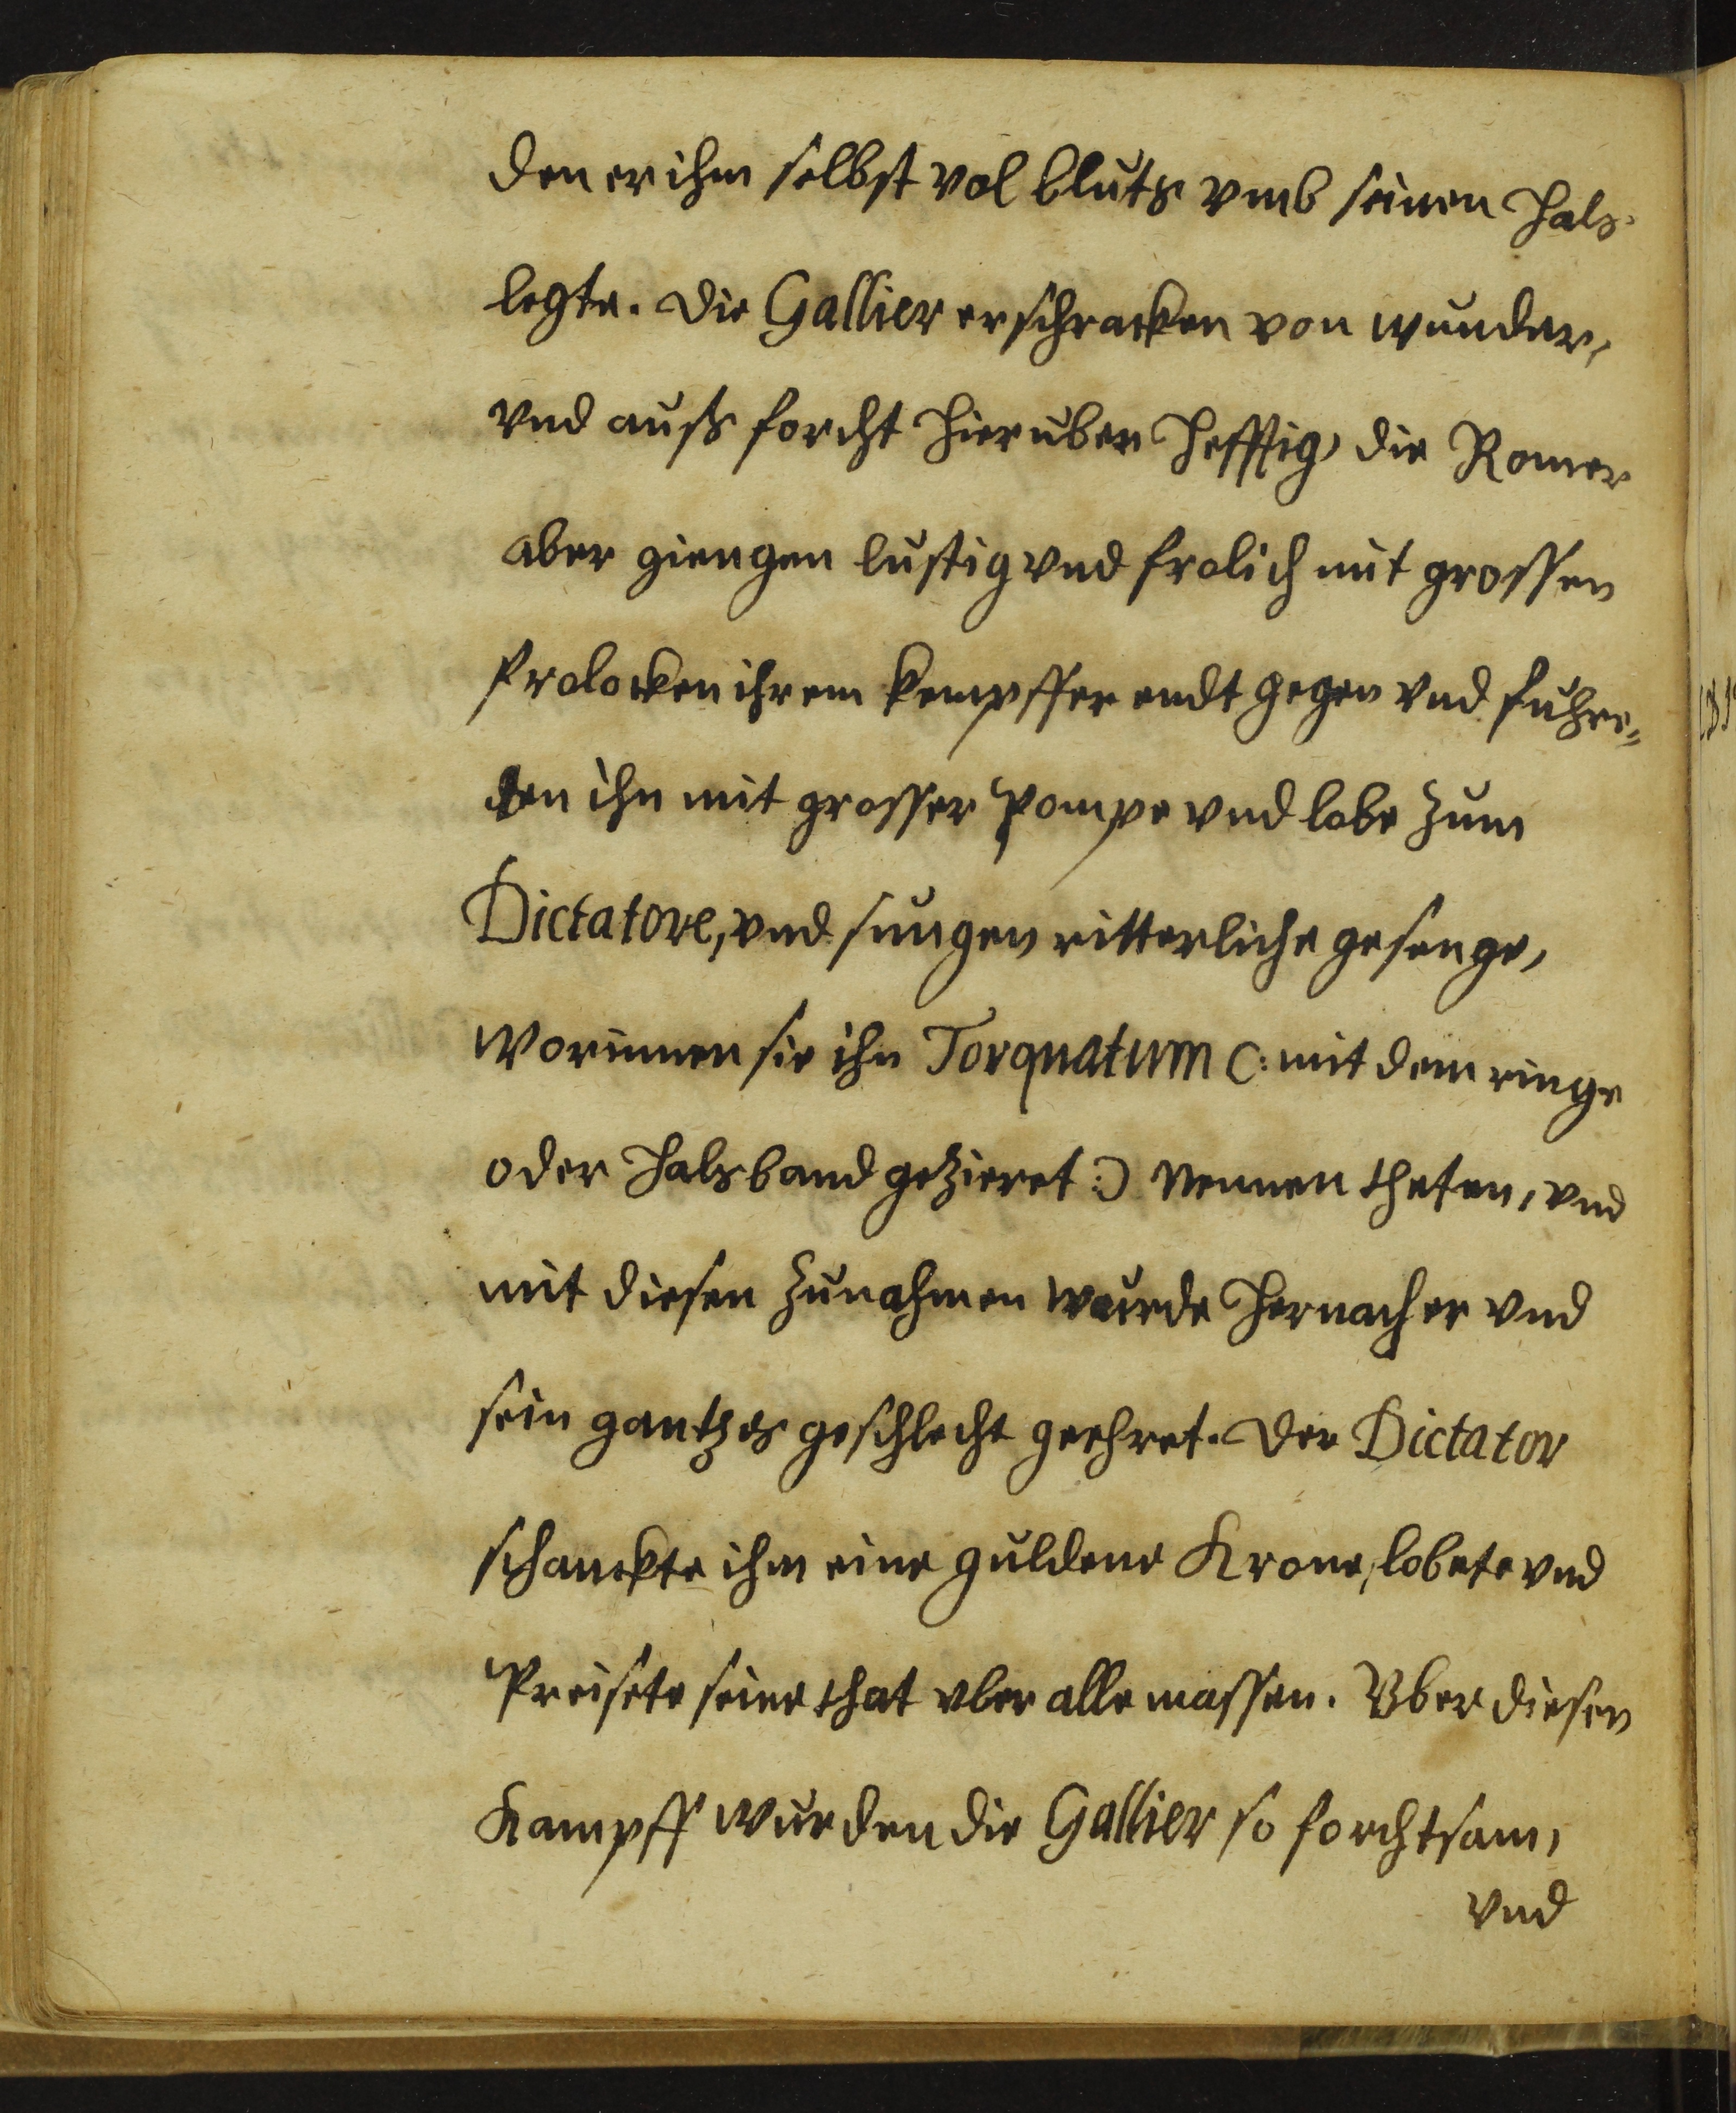 den er ihm selbst vol bluts vmb seinen Hals
legte. die Gallier erschracken von wunder,
vnd auß forcht hieruber hefftig, die Romer
aber giengen lustig vnd frolich mit grossen
frolocken ihrem kempffer endtgegen vnd fuhre⸗
ten ihn mit grosser Pompe vnd lobe zum
Dictatore, vnd sungen ritterliche gesenge,
worinnen sie ihn Torquatum (: mit dem ringe
oder Halsband gezieret :) nennen theten, vnd
mit diesen zunahmen wurde hernach er vnd
sein gantzes geschlecht geehret. Der Dictator
schanckte ihm eine guldene Krone, lobete vnd
Preisete seine that vber alle massen. Vber diesen
Kampff wurden die Gallier so forchtsam,
vnd